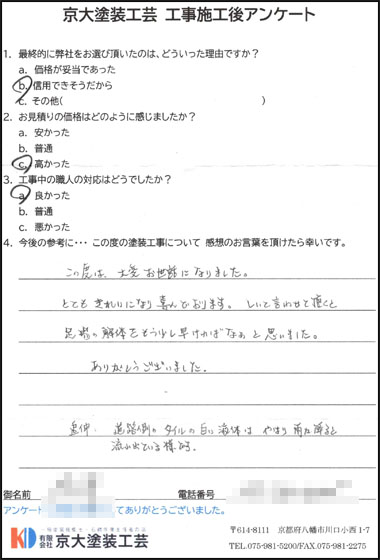 京大塗装工芸 工事施工後アンケート
1. 最終的に弊社をお選び頂いたのは、どういった理由ですか？
a. 価格が妥当であった
b. 信用できそうだから
c. その他( )
2. お見積りの価格はどのように感じましたか？
a. 安かった
b. 普通
c. 高かった
3. 工事中の職人の対応はどうでしたか？
a. 良かった
b. 普通
c. 悪かった
4. 今後の参考に･･･ この度の塗装工事について 感想のお言葉を頂けたら幸いです。
この度は、大変お世話になりました。
とてもきれいになり喜んでおります。しいて言わせて頂くと
足場の解体をもう少し早ければなぁと思いました。
ありがとうございました。
道路側のタイルの白い液体は やはり雨が降ると
流れ出ている様
御名前 電話番号
アンケート てありがとうございました。
KD 有限会社 京大塗装工芸
〒614-8111 京都府八幡市川口小西1-7
TEL.075-981-5200/FAX.075-981-2275